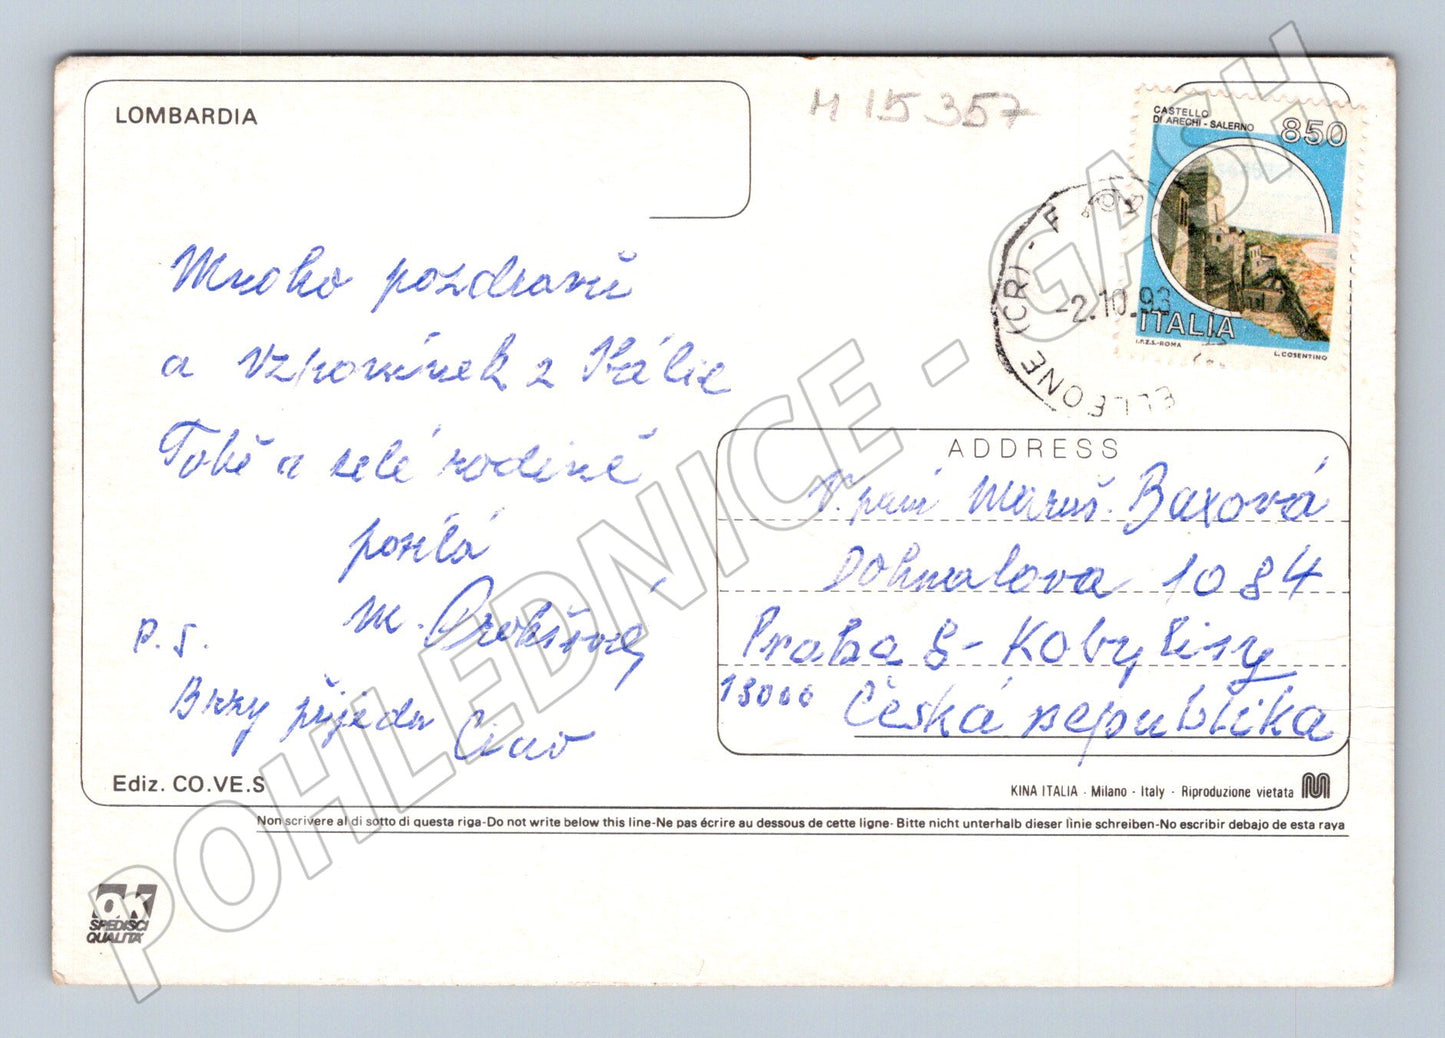 LOMBARDIA
M 15357
CASTELLO
DI ARECHI - SALERNO
850
ITALIA
I.P.Z.S.-ROMA
L. COSENTINO
ELLEFONE (CR) - F
-2.10.93
Mnoho pozdravů
a vzpomínek z Itálie
Tobě a celé rodině
posílá
M.
P.S.
Brzy přijedu Čau
ADDRESS
V. paní Maruš. Baxová
Dohnalova 1084
Praha 8 - Kobylisy
18000 Česká republika
Ediz. CO.VE.S
KINA ITALIA - Milano - Italy - Riproduzione vietata
Non scrivere al di sotto di questa riga-Do not write below this line-Ne pas écrire au dessous de cette ligne- Bitte nicht unterhalb dieser linie schreiben-No escribir debajo de esta raya
OK
SPEDISCI
QUALITÀ
POHLEDNICE - GASH